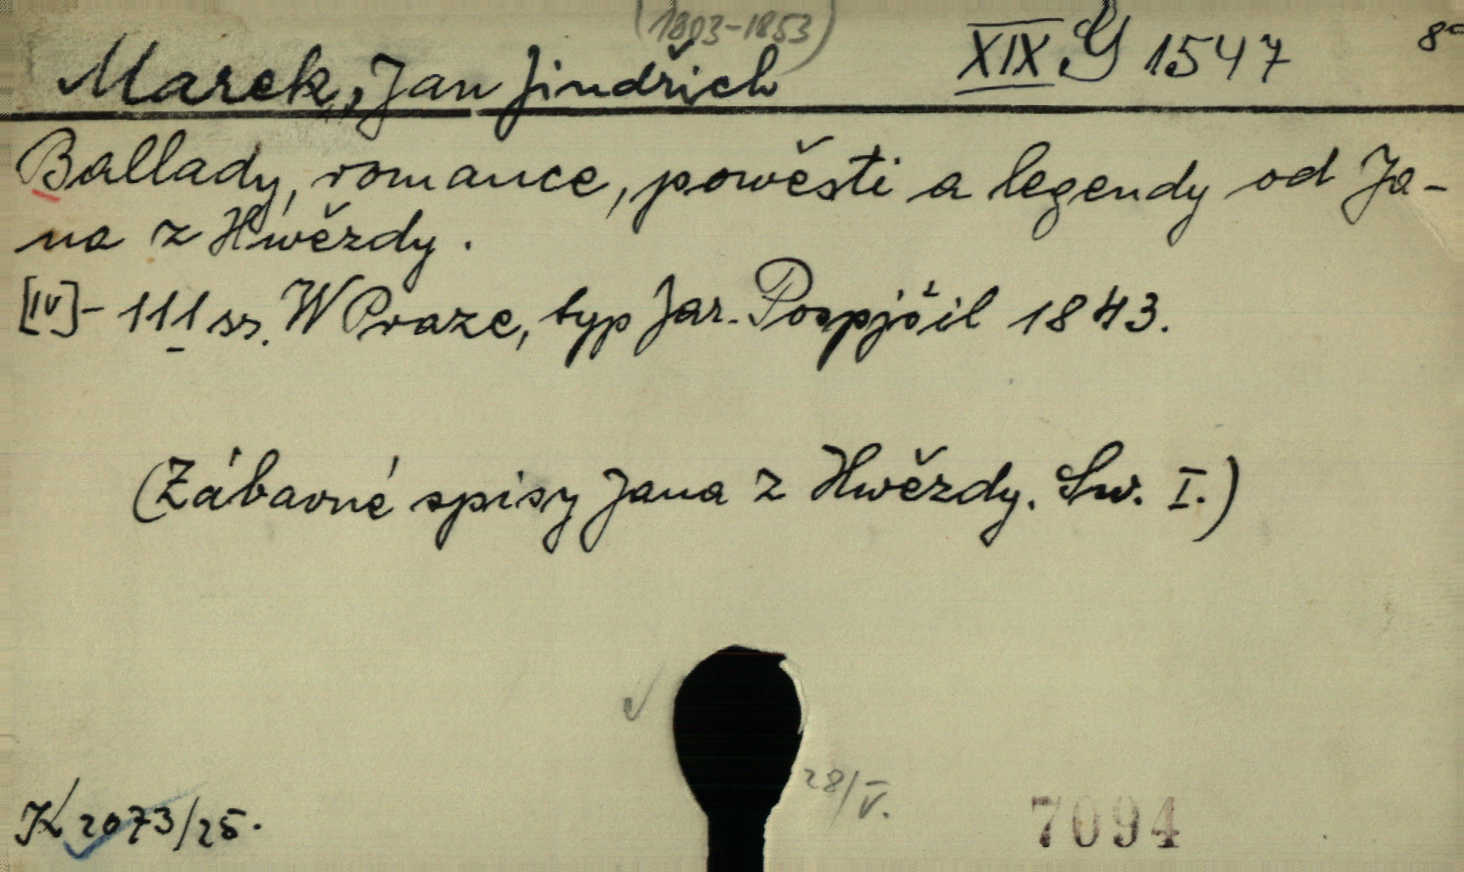 (1803-1853)
Marek, Jan Jindřich XIX G 1547 8°
Ballady, romance, powěsti a legendy od Ja-
na z Hwězdy.
[IV]- 111 ss. W Praze, typ Jar. Pospjšil 1843.
(Zábavné spisy Jana z Hwězdy. Sw. I.)
28/V.
K 2073/25. 7094